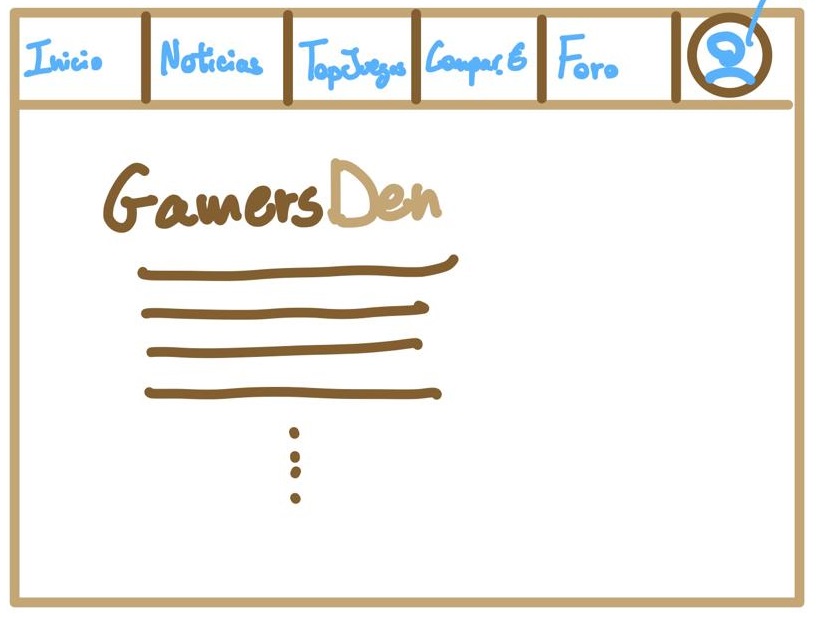 Inicio Noticias TopJuegos Compar. € Foro
GamersDen